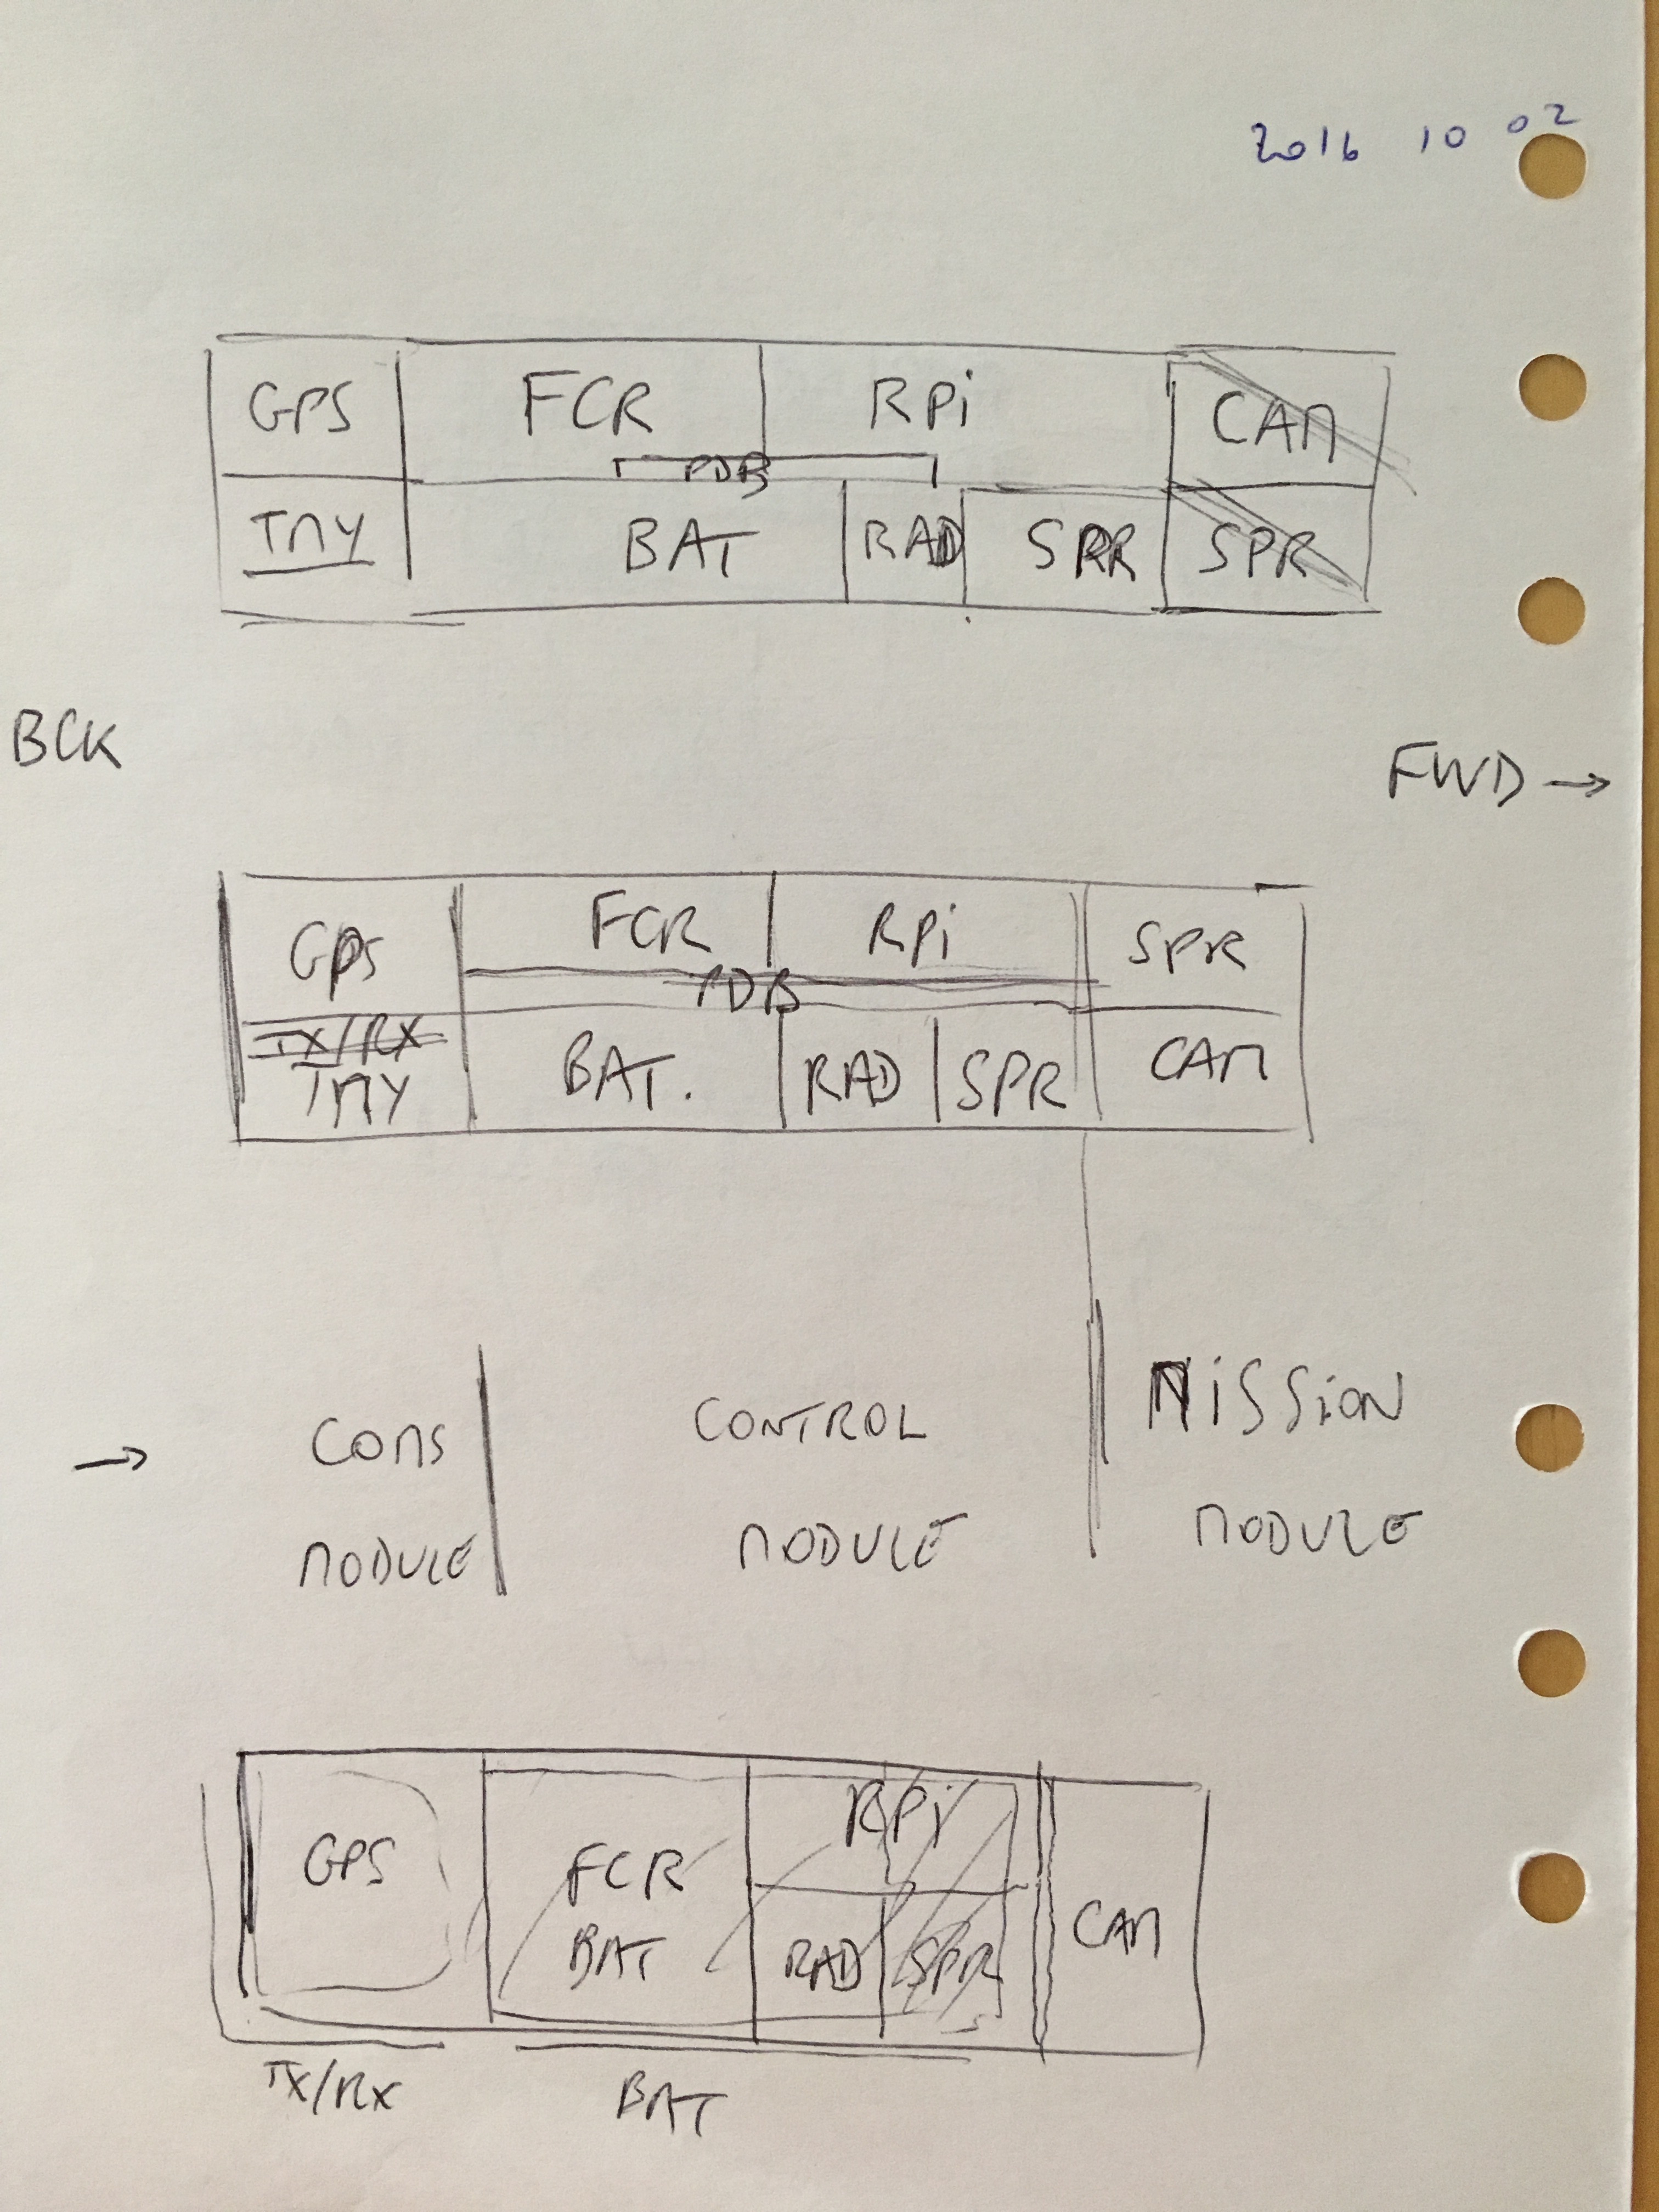 2016 10 02
GPS FCR RPi CAM
PDB
TMY BAT RAD SPR SPR
BCK FWD →
GPS FCR RPi SPR
PDB
TX/RX
TMY BAT. RAD SPR CAM
→ COMS CONTROL MISSION
MODULE MODULE MODULE
RPi
GPS FCR
BAT RAD SPR CAM
TX/RX BAT